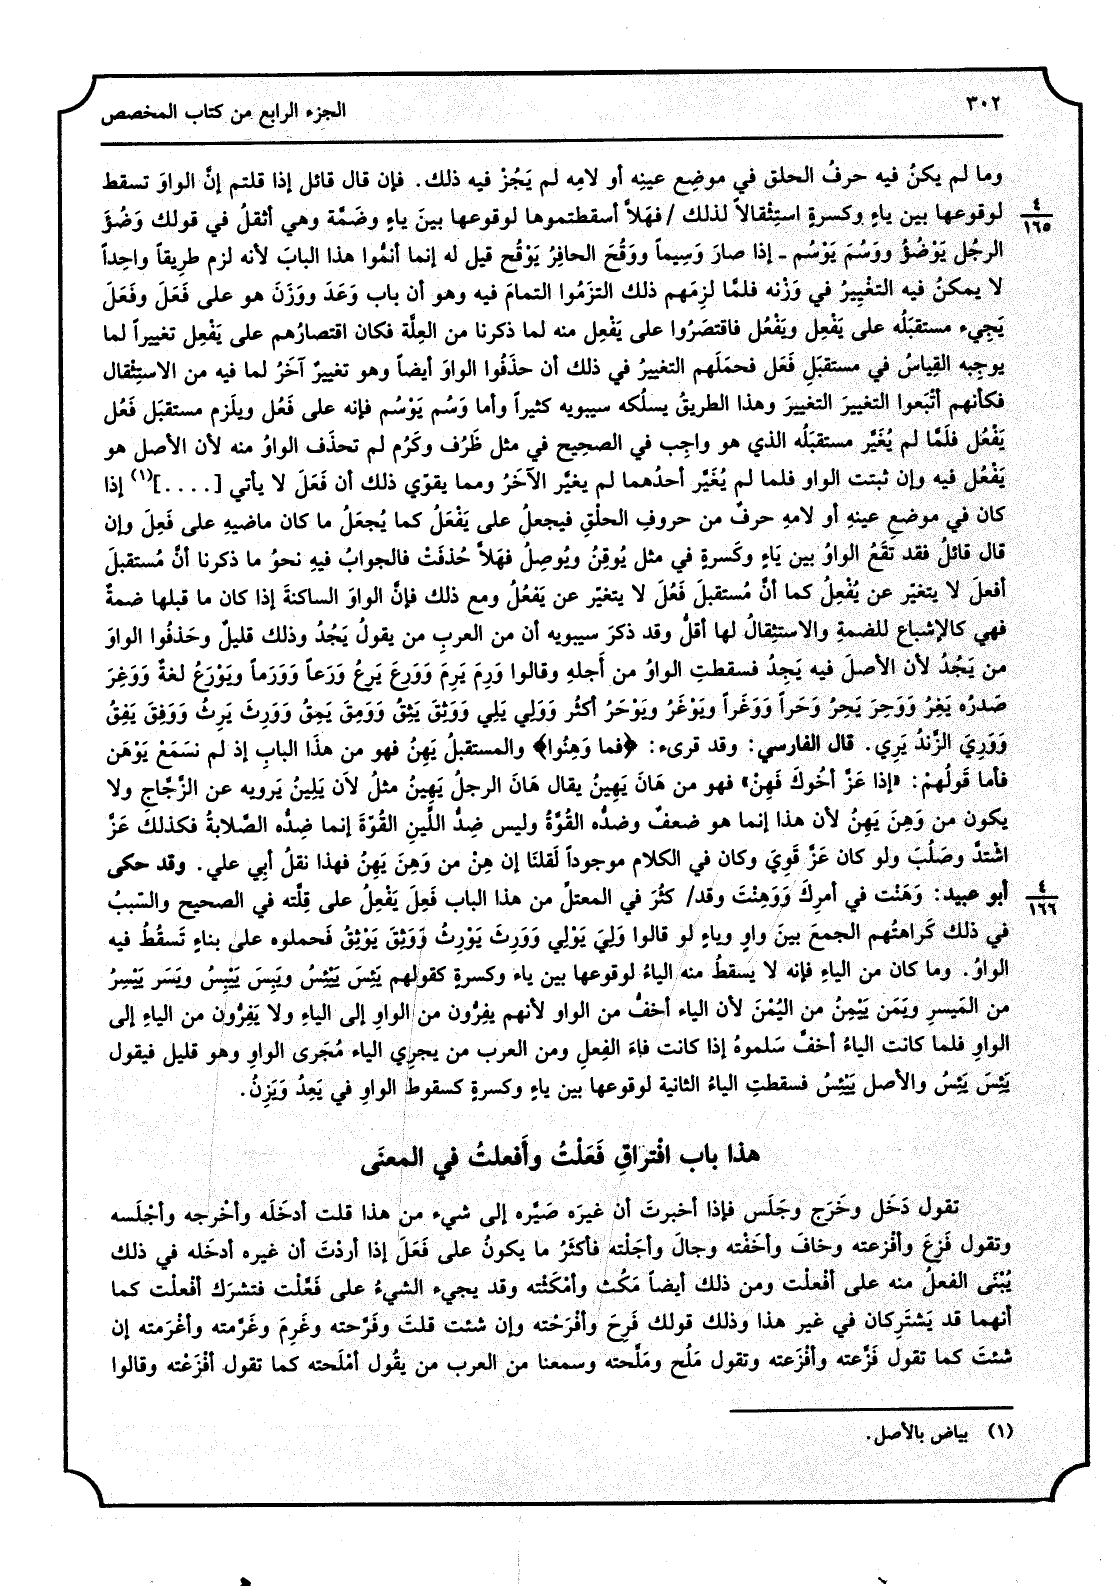 ٣٠٢
الجزء الرابع من كتاب المخصص
وما لم يكنُ فيه حرفُ الحلق في موضِع عينِه أو لامِه لم يَجُزْ فيه ذلك. فإن قال قائل إذا قلتم إنَّ الواوَ تسقط
لوقوعها بين ياءٍ وكسرةٍ استِثْقالاً لذلك / فهَلاَّ أسقطتموها لوقوعها بينَ ياءٍ وضَمَّة وهي أثقلُ في قولك وَضُؤَ
٤
١٦٥
الرجُل يَوْضُؤُ ووَسُمَ يَوْسُم ـ إذا صارَ وَسِيماً ووَقُحَ الحافِرُ يَوْقُح قيل له إنما أتمُّوا هذا البابَ لأنه لزم طرِيقاً واحِداً
لا يمكنُ فيه التغْيِيرُ في وَزْنه فلمَّا لزِمَهم ذلك التزَمُوا التمامَ فيه وهو أن باب وَعَدَ ووَزَن هو على فَعَلَ وفَعَلَ
يَجِيء مستقبَلُه على يَفْعِل ويَفْعُل فاقتَصَرُوا على يَفْعِل منه لما ذكرنا من العِلَّة فكان اقتصارُهم على يَفْعِل تغييراً لما
يوجِبه القِياسُ في مستقبَلِ فَعَل فحمَلَهم التغييرُ في ذلك أن حذَفُوا الواوَ أيضاً وهو تغييرٌ آخَرُ لما فيه من الاستِثْقال
فكأنهم أتْبَعوا التغييرَ التغييرَ وهذا الطريقُ يسلُكه سيبويه كثيراً وأما وَسُم يَوْسُم فإنه على فَعُل ويلَزم مستقبَل فَعُل
يَفْعُل فلَمَّا لم يُغَيَّر مستقبَلُه الذي هو واجِب في الصحيح في مثل ظَرُف وكَرُم لم تحذَف الواوُ منه لأن الأصل هو
يَفْعُل فيه وإن ثبتت الواو فلما لم يُغَيَّر أحدُهما لم يغيَّر الآخَرُ ومما يقوّي ذلك أن فَعَلَ لا يأتي [....](١) إذا
كان في موضعِ عينهِ أو لامهِ حرفٌ من حروفِ الحلْقِ فيجعلُ على يَفْعَلُ كما يُجعَلُ ما كان ماضيهِ على فَعِلَ وإن
قال قائلُ فقد تقَعُ الواوُ بين يَاءٍ وكَسرةٍ في مثل يُوقِنُ ويُوصِلُ فهَلاَّ حُذفَتْ فالجوابُ فيهِ نحوُ ما ذكرنا أنَّ مُستقبلَ
أفعلَ لا يتغيّر عن يُفْعِلُ كما أنَّ مُستقبلَ فَعُلَ لا يتغيّر عن يَفعُلُ ومع ذلك فإنَّ الواوَ الساكنةَ إذا كان ما قبلها ضمةٌ
فهي كالإشباع للضمةِ والاستثِقالُ لها أقلُّ وقد ذكرَ سيبويه أن من العربِ من يقولُ يَجُدُ وذلك قليلٌ وحَذفُوا الواوَ
من يَجُدُ لأن الأصلَ فيه يَجِدُ فسقطتِ الواوُ من أَجلهِ وقالوا وَرِمَ يَرِمَ وَوَرِعَ يَرِعُ وَرَعاً وَوَرَماً ويَوْرَعُ لغةٌ وَوَغِرَ
صَدرُه يَغِرُ وَوَحِرَ يَحِرُ وَحَراً وَوَغَراً ويَوْغَرُ ويَوْحَرُ أكثُر وَوَلي يَلي وَوَثِقَ يَثِقُ وَوَمِقَ يَمِقُ وَوَرِثَ يَرِثُ وَوَفِقَ يَفِقُ
وَوَرِيَ الزَّندُ يَرِي. قال الفارسي: وقد قرىء: ﴿فما وَهِنُوا﴾ والمستقبلُ يَهِنُ فهو من هذَا البابِ إذ لم نسَمَعْ يَوْهَن
فأما قَولُهمْ: «إذا عَزَّ أخُوكَ فَهِنْ» فهو من هَانَ يَهِينُ يقال هَانَ الرجلُ يَهِينُ مثلُ لاَن يَلِينُ يَرويه عن الزَّجّاجِ ولا
يكون من وَهِنَ يَهِنُ لأن هذا إنما هو ضعفٌ وضدُّه القُوَّةُ وليس ضِدُّ اللِّينِ القُوّةَ إنما ضِدُّه الصَّلابةُ فكذلكَ عَزَّ
اشْتدَّ وصَلُبَ ولو كان عَزَّ قَوِيَ وكان في الكلام موجوداً لَقلنَا إن هِنْ من وَهِنَ يَهِنُ فهذا نقلُ أبِي علي. وقد حكى
أبو عبيد: وَهَنْت في أمرِكَ وَوَهِنْتَ وقد/ كثُرَ في المعتلِّ من هذا الباب فَعِلَ يَفْعِلُ على قِلَّته في الصحيح والسّببُ
٤
١٦٦
في ذلك كَراهتُهم الجمعَ بينَ واوٍ وياءٍ لو قالوا وَلِيَ يَوْلِي وَوَرِثَ يَوْرِثُ وَوَثِقَ يَوْثِقُ فَحملوه على بناءٍ تَسقُطُ فيه
الواوُ. وما كان من الياءِ فإنه لا يسقطُ منه الياءُ لوقوعها بين ياء وكسرةٍ كقولهم يَئِسَ يَيْئِسُ ويَبِسَ يَيْبِسُ ويَسَر يَيْسِرُ
من المَيسرِ ويَمَن يَيْمِنُ من اليُمْنَ لأن الياء أخفُّ من الواو لأنهم يفِرُّون من الواوِ إلى الياءِ ولا يَفِرُّون من الياءِ إلى
الواوِ فلما كانت الياءُ أخفَّ سَلموهُ إذا كانت فاءَ الفِعلِ ومن العرب من يجرِي الياء مُجَرى الواوِ وهو قليل فيقول
يَئِسَ يَئِسُ والأصل يَيْئِسُ فسقطتِ الياءُ الثانية لوقوعها بين ياءٍ وكسرةٍ كسقوطِ الواوِ في يَعِدُ وَيَزِنُ.
هذا باب افْتراقِ فَعَلْتُ وأَفعلتُ في المعنَى
تقول دَخَل وخَرَج وجَلَس فإذا أخبرتَ أن غيرَه صَيَّره إلى شيء من هذا قلت أدخَلَه وأخْرجه وأجْلَسه
وتقول فَزِعَ وأفْزعته وخافَ وأخَفْته وجالَ وأجَلْته فأكثَرُ ما يكونُ على فَعَلَ إذا أردْتَ أن غيره أدخَله في ذلك
يُبْنَى الفعلُ منه على أفْعلْت ومن ذلك أيضاً مَكُث وأمْكَثْته وقد يجيء الشيءُ على فَعَّلْت فتشرَك أفْعلْت كما
أنهما قد يَشتَرِكان في غير هذا وذلك قولك فَرِحَ وأفْرَحْته وإن شئت قلتَ وفَرَّحته وغَرِمَ وغَرَّمته وأغْرَمته إن
شئتَ كما تقول فَزَّعته وأفْزَعته وتقول مَلُح ومَلَّحته وسمعنا من العرب من يقُول أمْلَحته كما تقول أفْزَعْته وقالوا
(١) بياض بالأصل.